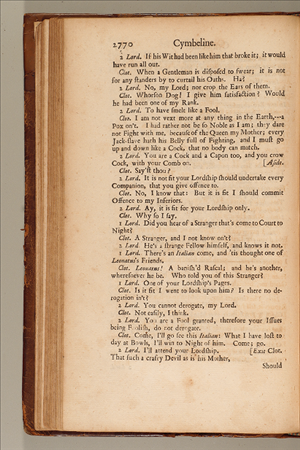 2770 Cymbeline.
2 Lord. If his Wit had been like him that broke it; it would
have run all out.
Clot. When a Gentleman is disposed to swear; it is not
for any standers by to curtail his Oaths. Ha?
2 Lord. No, my Lord; nor crop the Ears of them.
Clot. Whorson Dog! I give him satisfaction? Would
he had been one of my Rank.
2 Lord. To have smelt like a Fool.
Clot. I am not vext more at any thing in the Earth,--a
Pox on't. I had rather not be so Noble as I am; they dare
not Fight with me, because of the Queen my Mother; every
Jack-slave hath his Belly full of Fighting, and I must go
up and down like a Cock, that no body can match.
2 Lord. You are a Cock and a Capon too, and you crow
Cock, with your Comb on. [Aside.
Clot. Say'st thou?
2 Lord. It is not fit your Lordship should undertake every
Companion, that you give offence to.
Clot. No, I know that: But it is fit I should commit
Offence to my Inferiors.
2 Lord. Ay, it is fit for your Lordship only.
Clot. Why so I say.
1 Lord. Did you hear of a Stranger that's come to Court to
Night?
Clot. A Stranger, and I not know on't?
2 Lord. He's a strange Fellow himself, and knows it not.
1 Lord. There's an Italian come, and 'tis thought one of
Leonatus's Friends.
Clot. Leonatus! A banish'd Rascal; and he's another,
wheresoever he be. Who told you of this Stranger?
1 Lord. One of your Lordship's Pages.
Clot. Is it fit I went to look upon him? Is there no de-
rogation in't?
2 Lord. You cannot derogate, my Lord.
Clot. Not easily, I think.
2 Lord. You are a Fool granted, therefore your Issues
being Foolish, do not derogate.
Clot. Come, I'll go see this Italian: What I have lost to
day at Bowls, I'll win to Night of him. Come; go.
2 Lord. I'll attend your Lordship. [Exit Clot.
That such a crafty Devil as is his Mother,
Should